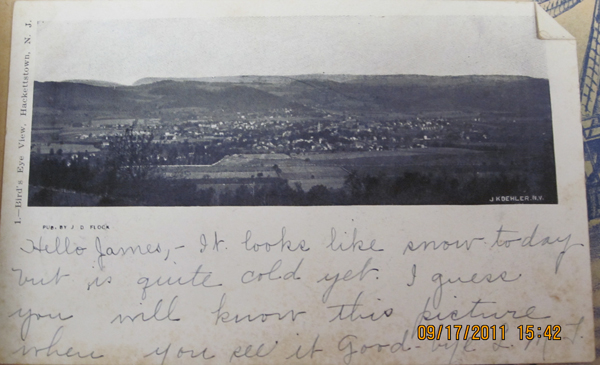 1.—Bird's Eye View, Hackettstown, N. J.
J. KOEHLER, N.Y.
PUB. BY J. D. FLOCK
Hello James,- It looks like snow today
but is quite cold yet. I guess
you will know this picture
when you see it Good-bye
09/17/2011 15:42